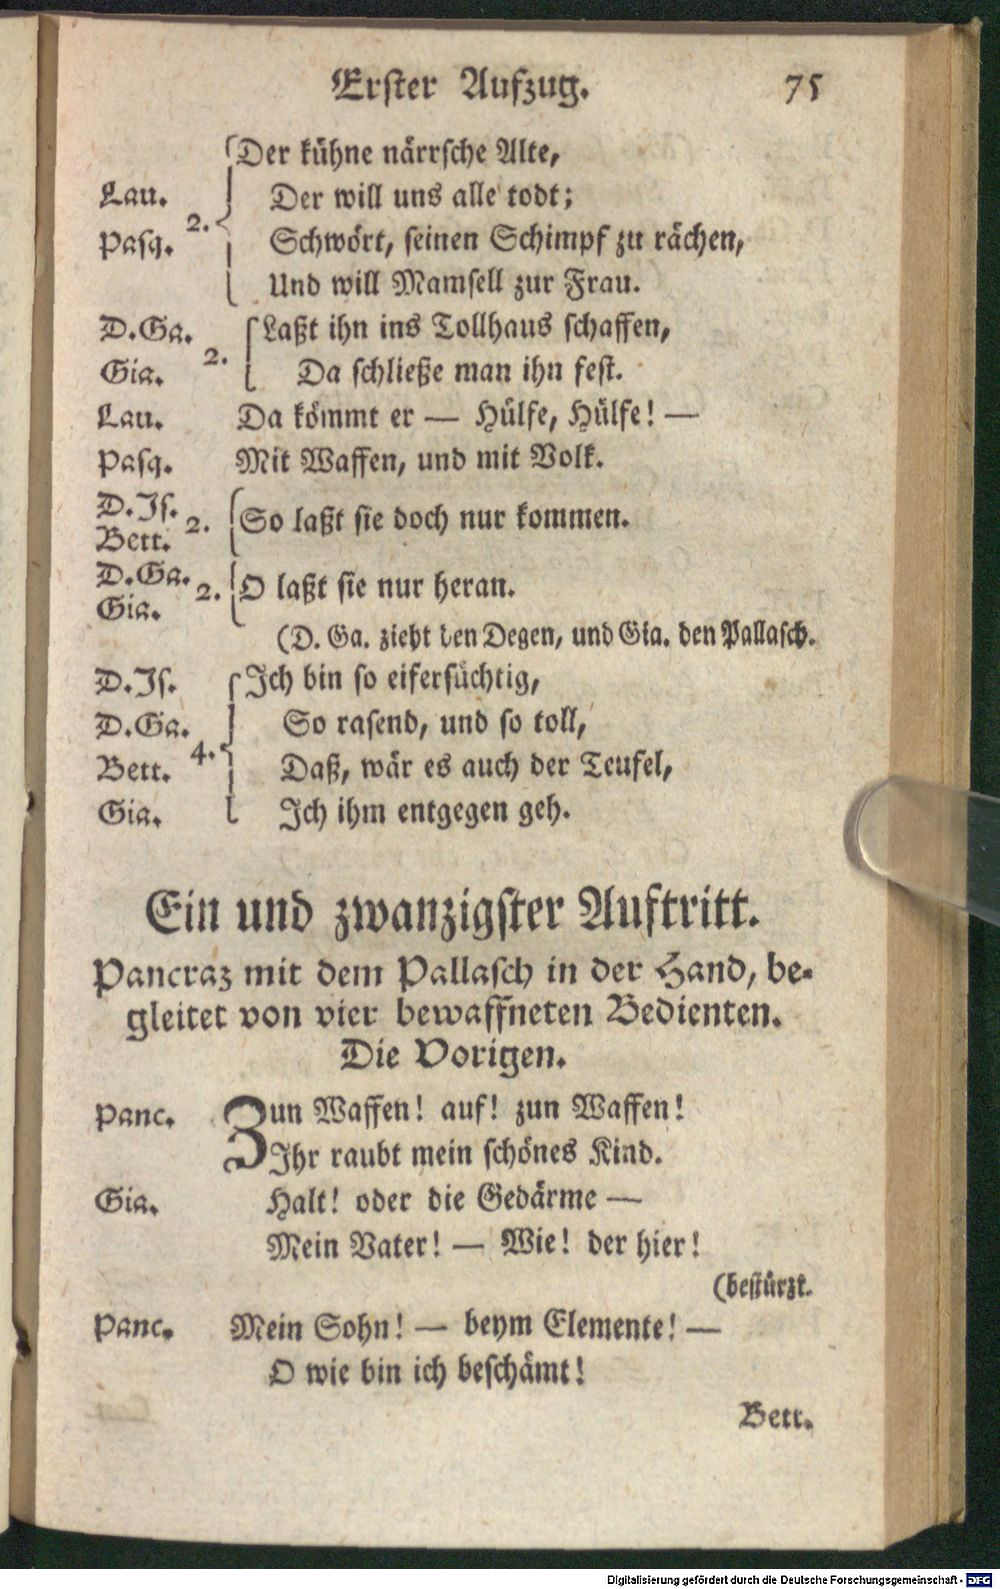 Erster Aufzug. 75
Der kühne närrsche Alte,
Lau. Der will uns alle todt;
2.
Pasq. Schwört, seinen Schimpf zu rächen,
Und will Mamsell zur Frau.
D.Ga. Laßt ihn ins Tollhaus schaffen,
2.
Gia. Da schließe man ihn fest.
Lau. Da kömmt er — Hülfe, Hülfe! —
Pasq. Mit Waffen, und mit Volk.
D.Is.
2. So laßt sie doch nur kommen.
Bett.
D.Ga.
2. O laßt sie nur heran.
Gia.
(D. Ga. zieht den Degen, und Gia. den Pallasch.
D.Is. Ich bin so eifersüchtig,
D.Ga. So rasend, und so toll,
4.
Bett. Daß, wär es auch der Teufel,
Gia. Ich ihm entgegen geh.
Ein und zwanzigster Auftritt.
Pancraz mit dem Pallasch in der Hand, be-
gleitet von vier bewaffneten Bedienten.
Die Vorigen.
Panc. Zun Waffen! auf! zun Waffen!
Ihr raubt mein schönes Kind.
Gia. Halt! oder die Gedärme —
Mein Vater! — Wie! der hier!
(bestürzt.
Panc. Mein Sohn! — beym Elemente! —
O wie bin ich beschämt!
Bett.
Digitalisierung gefördert durch die Deutsche Forschungsgemeinschaft - DFG